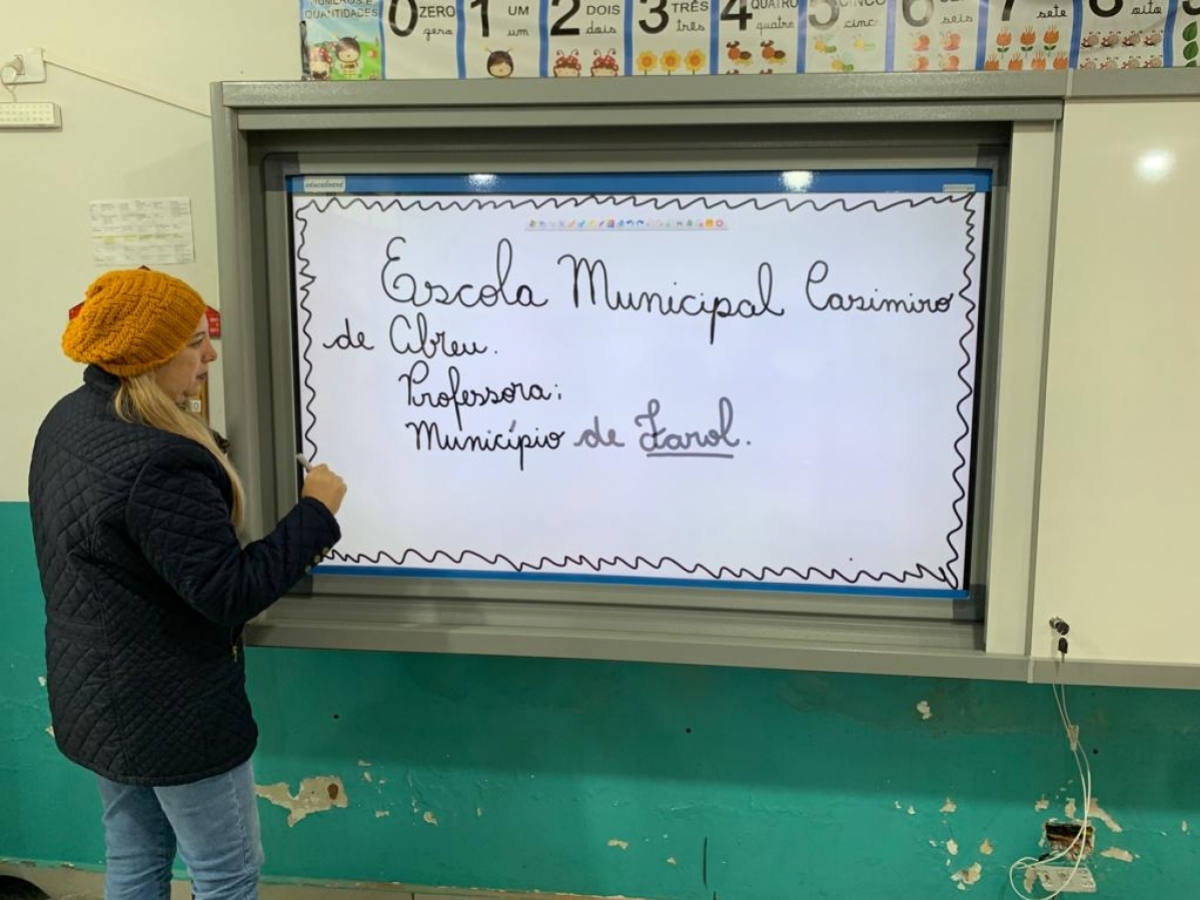 NÚMEROS E
QUANTIDADES
0 ZERO zero
1 UM um
2 DOIS dois
3 TRÊS três
4 QUATRO quatro
5 CINCO cinco
6 seis
7 sete
8 oito
Escola Municipal Casimiro
de Abreu.
Professora:
Município de Farol.